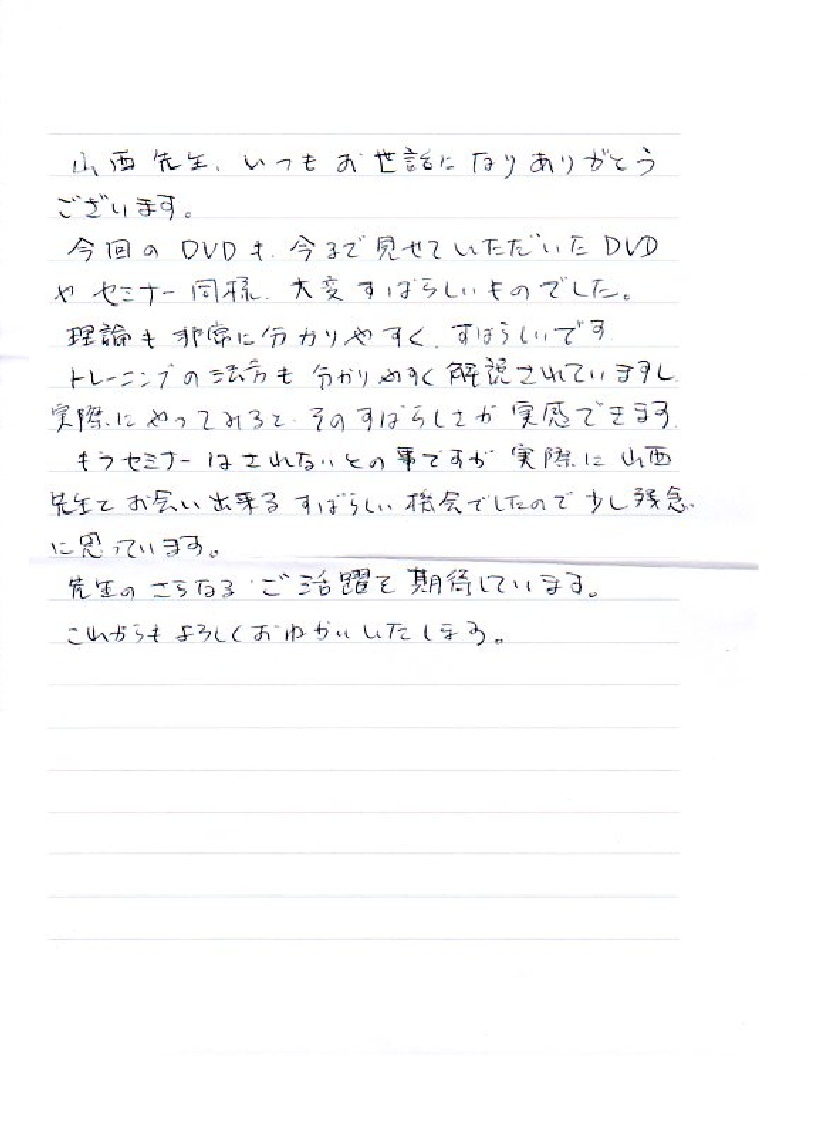 山西先生、いつもお世話になりありがとう
ございます。
今回のDVDも、今まで見せていただいたDVD
やセミナー同様、大変すばらしいものでした。
理論も非常に分かりやすく、すばらしいです。
トレーニングの法方も分かりやすく解説されていますし、
実際にやってみると、そのすばらしさが実感できます。
もうセミナーはされないとの事ですが実際に山西
先生とお会い出来るすばらしい機会でしたので少し残念
に思っています。
先生のさらなるご活躍を期待しています。
これからもよろしくおねがいいたします。